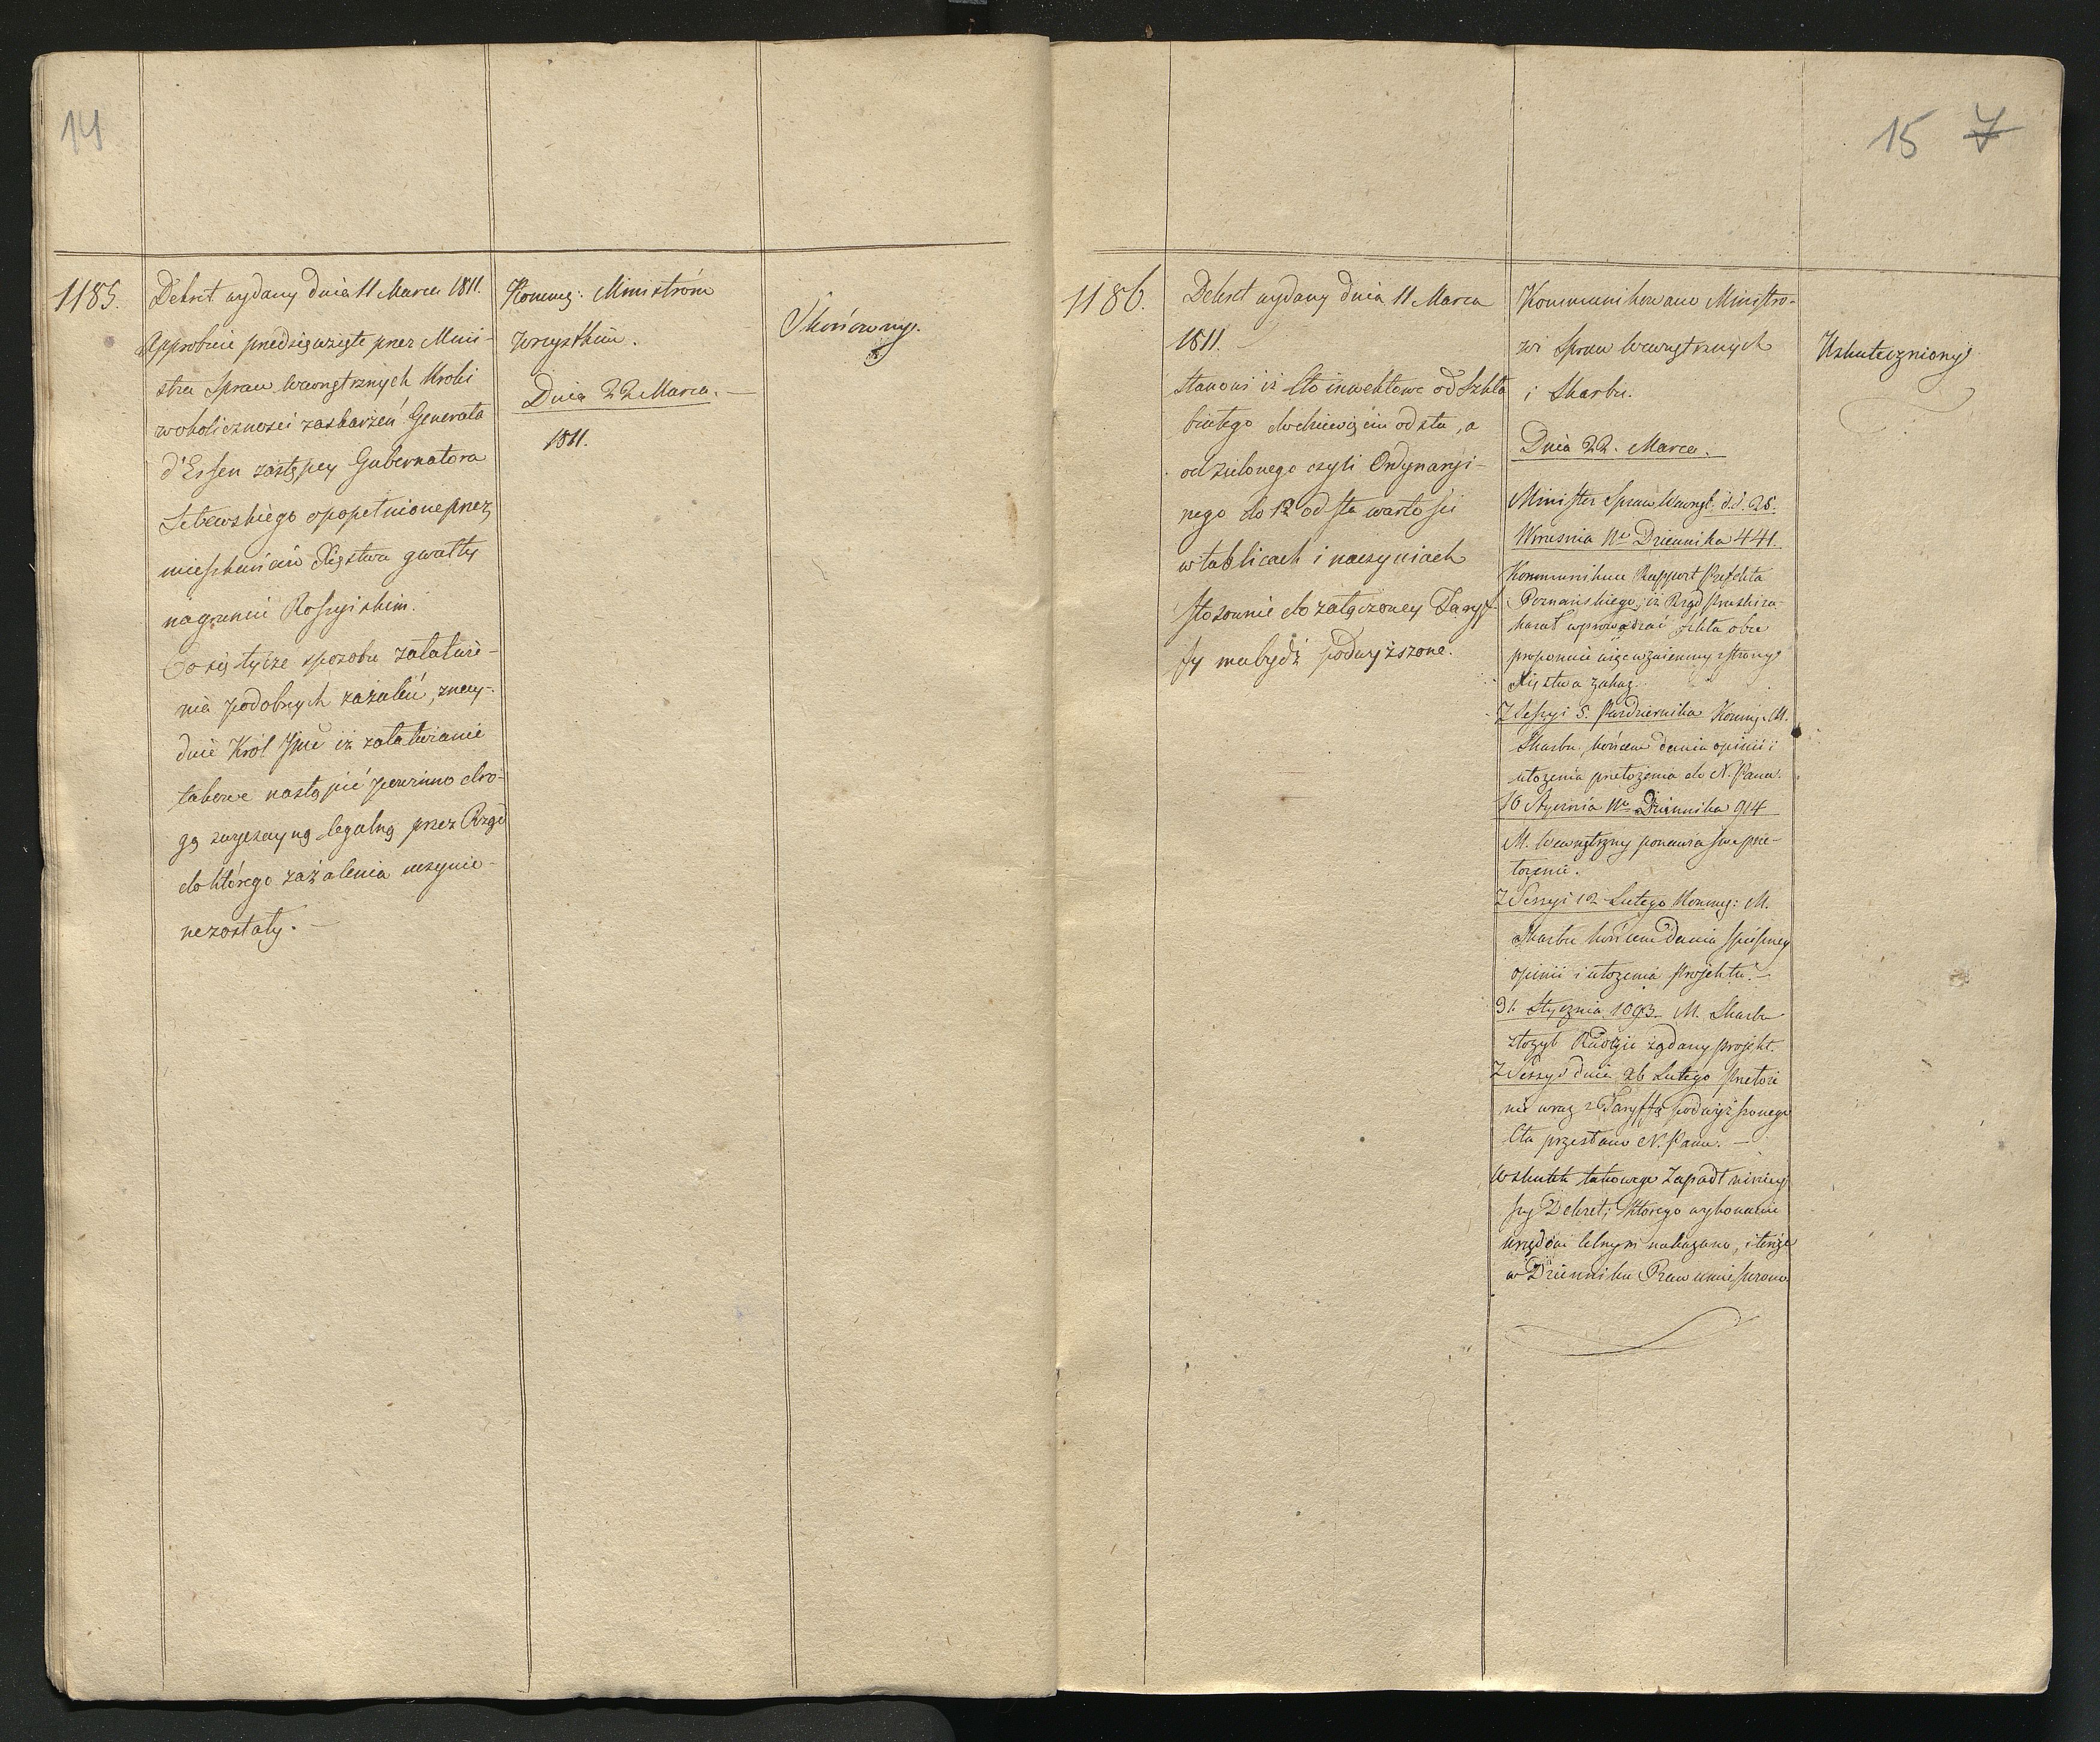 14
1185.
Dekret wydany dnia 11 Marca 1811.
Approbuie przedsięwzięte przez Mini-
stra Spraw Wewnętrznych Kroki
w okoliczności zaskarżeń Generała
d'Essen zastępcy Gubernatora
Litewskiego o popełnione przez
mieszkańców Xięstwa gwałty
na granicy Rossyiskiey.
Co się tycze sposobu załatwie-
nia podobnych zażaleń, znay-
duie Król Jmć iż załatwianie
takowe nastąpić powinno dro-
gą zwyczayną legalną przez Rząd
do którego zażalenia uczynio-
ne zostały. —
Kommg: Ministróm
wszystkim.
Dnia 22 Marca. —
1811.
Skończony.
15 7
1186.
Dekret wydany dnia 11 Marca
1811.
Stanowi iż Cło inwektowe od Szkła
białego do dziewięciu od sta, a
od zielonego czyli Ordynaryi-
nego do 12 od sta wartości
w tablicach i naczyniach
stosownie do załączoney Taryf-
fy ma bydź podwyższone.
Kommunikowano Ministro-
wi Spraw Wewnętrznych
i Skarbu.
Dnia 22. Marca.
Minister Spraw Wewnęt. d.d. 28.
Września Nr Dziennika 441.
Kommunikuie Rapport Prefekta
Poznańskiego, iż Rząd Pruski za-
kazał wprowadzać szkła obce
proponuie więc wzaiemny z strony
Xięstwa zakaz.
Z Sessyi 5. Października Kommg. M.
Skarbu końcem dania opinii i
ułożenia przełożenia do N. Pana.
16 Stycznia Nr Dziennika 914
M. Wewnętrzny ponawia swe prze-
łożenie.
Z Sessyi 12 Lutego Kommg: M.
Skarbu końcem dania spieszney
opinii i ułożenia projektu. —
31. Stycznia 1093. M. Skarbu
złożył Radzie żądany projekt.
Z Sessyi dnia 26 Lutego przełoże
nie wraz z Taryffą podwyższonego
Cła przesłano N. Panu. —
W skutek takowego zapadł niniey
szy Dekret; którego wykonanie
urzędom celnym nakazano, i tenże
w Dzienniku Praw umieszczono
Uskuteczniony